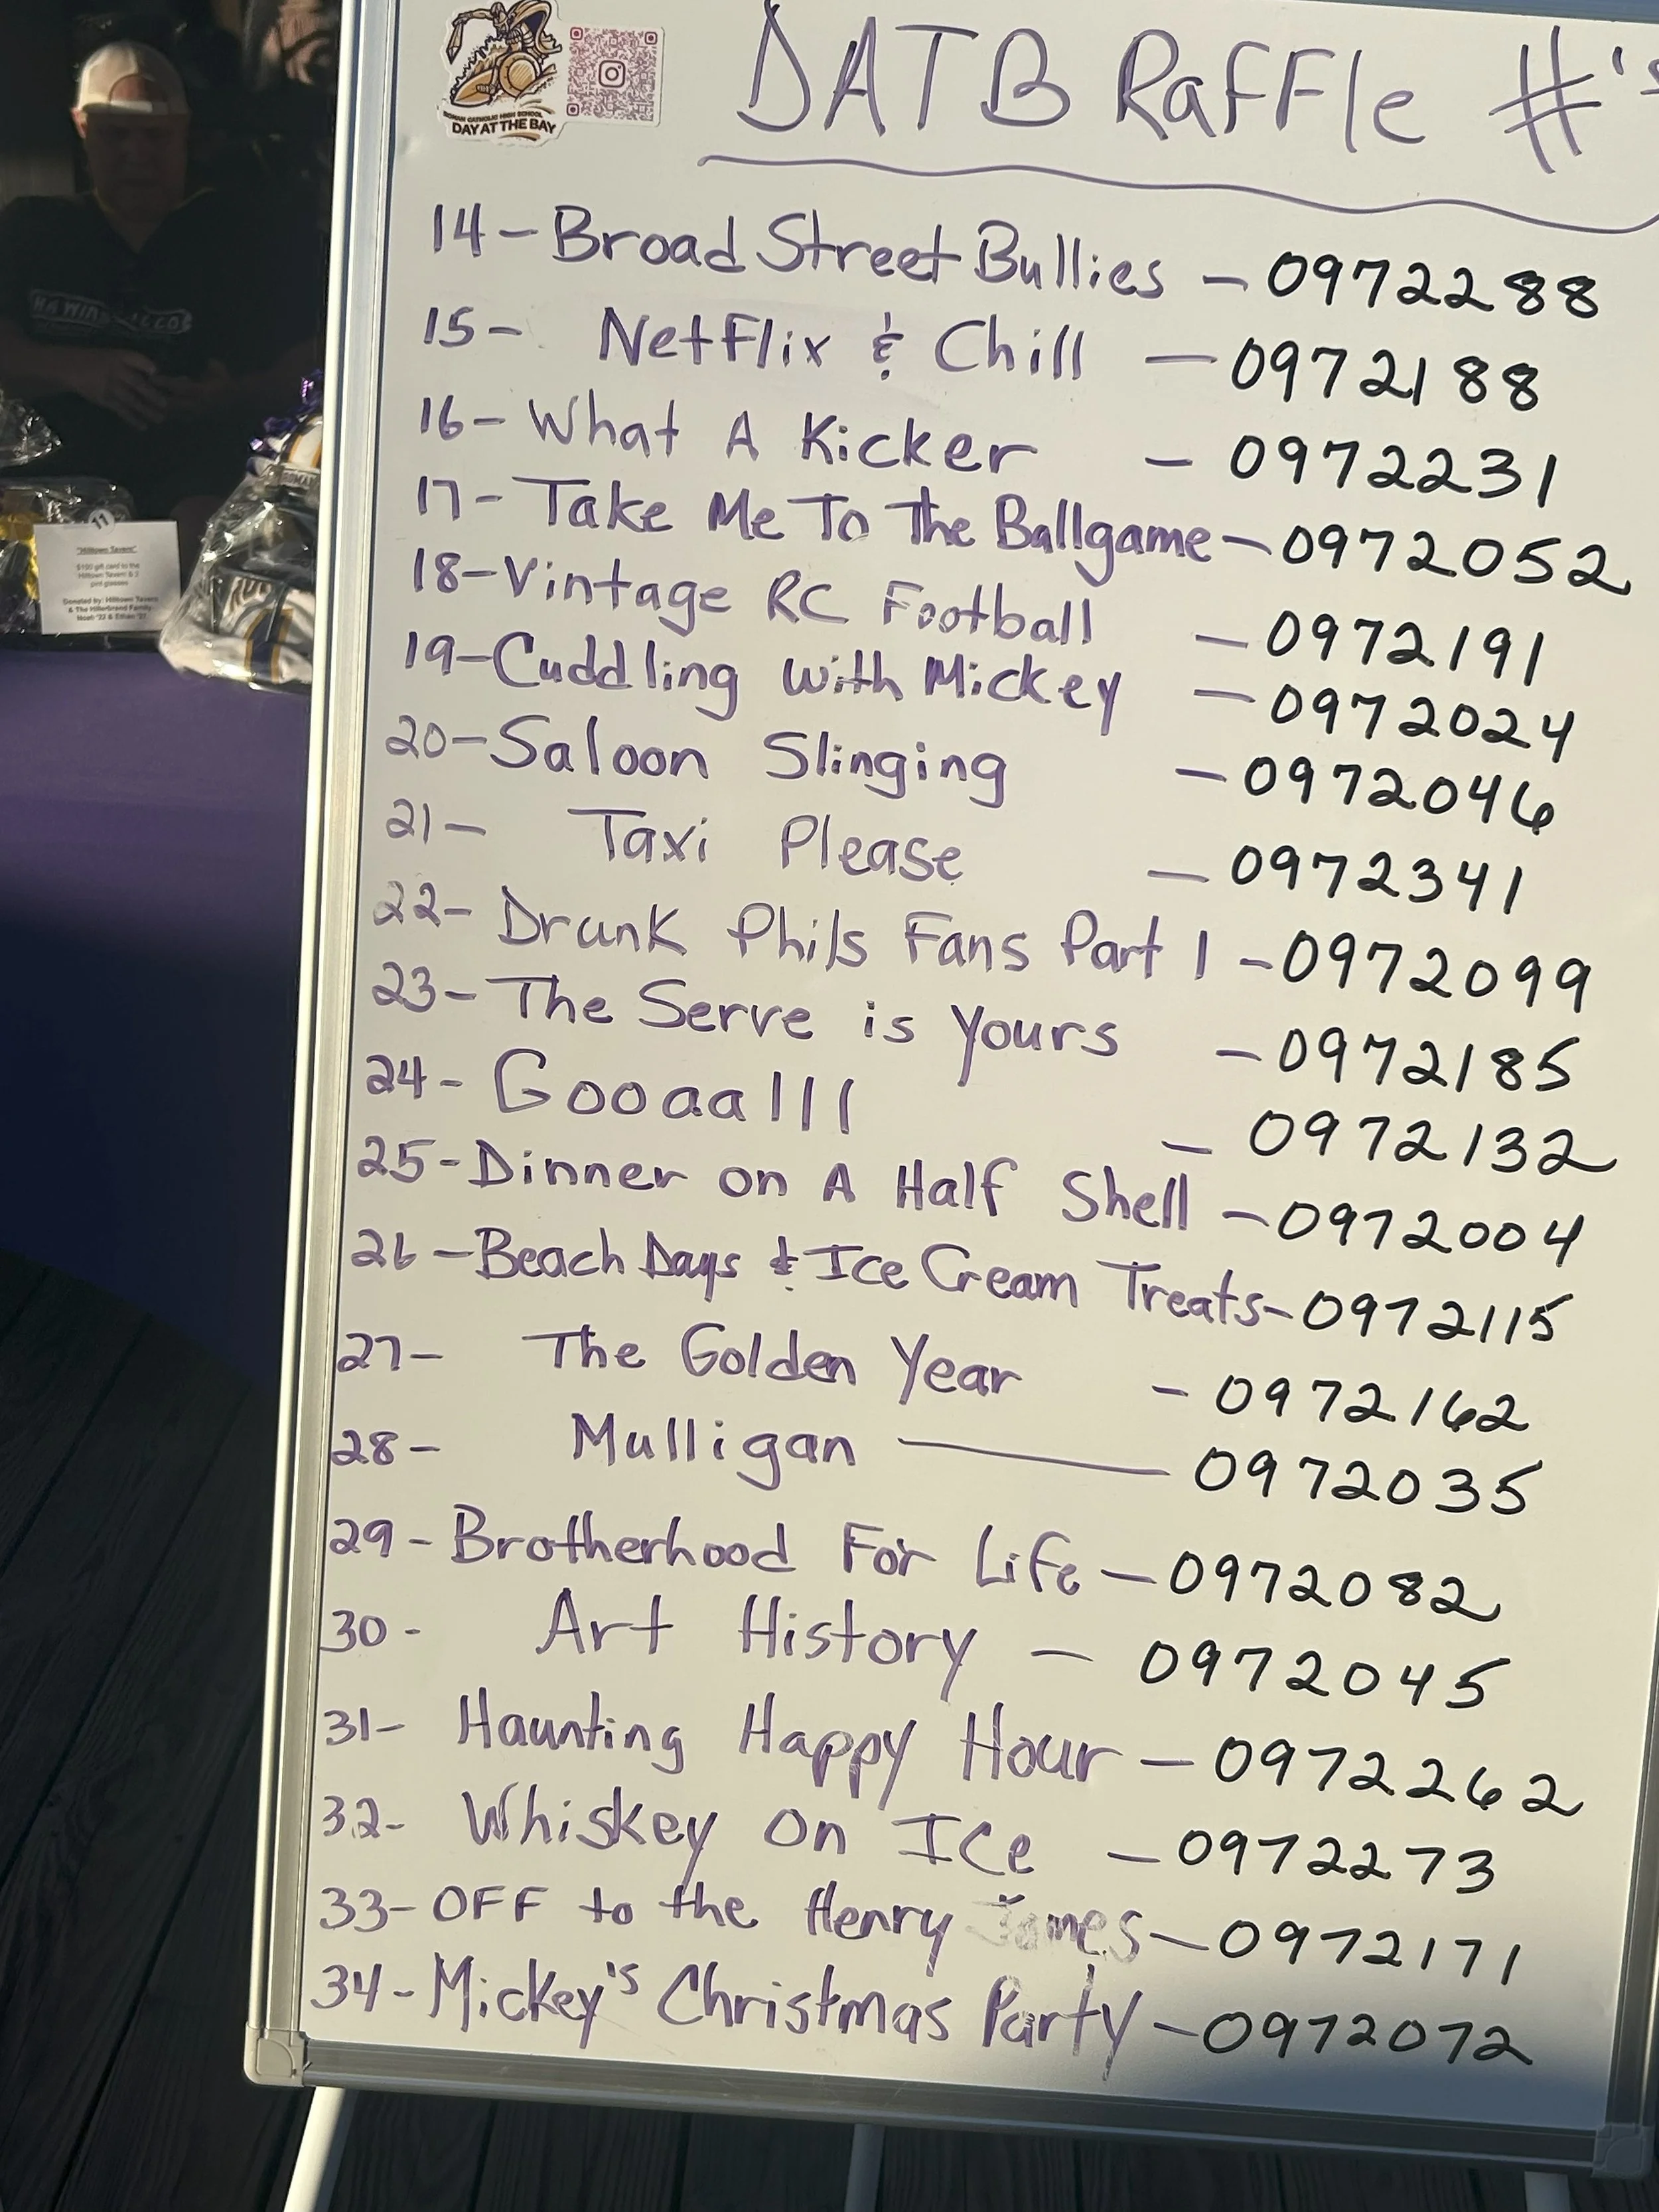 ROMAN CATHOLIC HIGH SCHOOL
DAY AT THE BAY
DATB Raffle #'s
14 - Broad Street Bullies - 0972288
15 - Netflix & Chill - 0972188
16 - What A Kicker - 0972231
17 - Take Me To The Ballgame - 0972052
18 - Vintage RC Football - 0972191
19 - Cuddling with Mickey - 0972024
20 - Saloon Slinging - 0972046
21 - Taxi Please - 0972341
22 - Drunk Phils Fans Part 1 - 0972099
23 - The Serve is Yours - 0972185
24 - Gooaalll - 0972132
25 - Dinner on A Half Shell - 0972004
26 - Beach Days & Ice Cream Treats - 0972115
27 - The Golden Year - 0972162
28 - Mulligan - 0972035
29 - Brotherhood For Life - 0972082
30 - Art History - 0972045
31 - Haunting Happy Hour - 0972262
32 - Whiskey On Ice - 0972273
33 - OFF to the Henry James - 0972171
34 - Mickey's Christmas Party - 0972072
11
"Hilltown Tavern"
$100 gift card to the
Hilltown Tavern & 2
pint glasses
Donated by: Hilltown Tavern
& The Hillerbrand Family